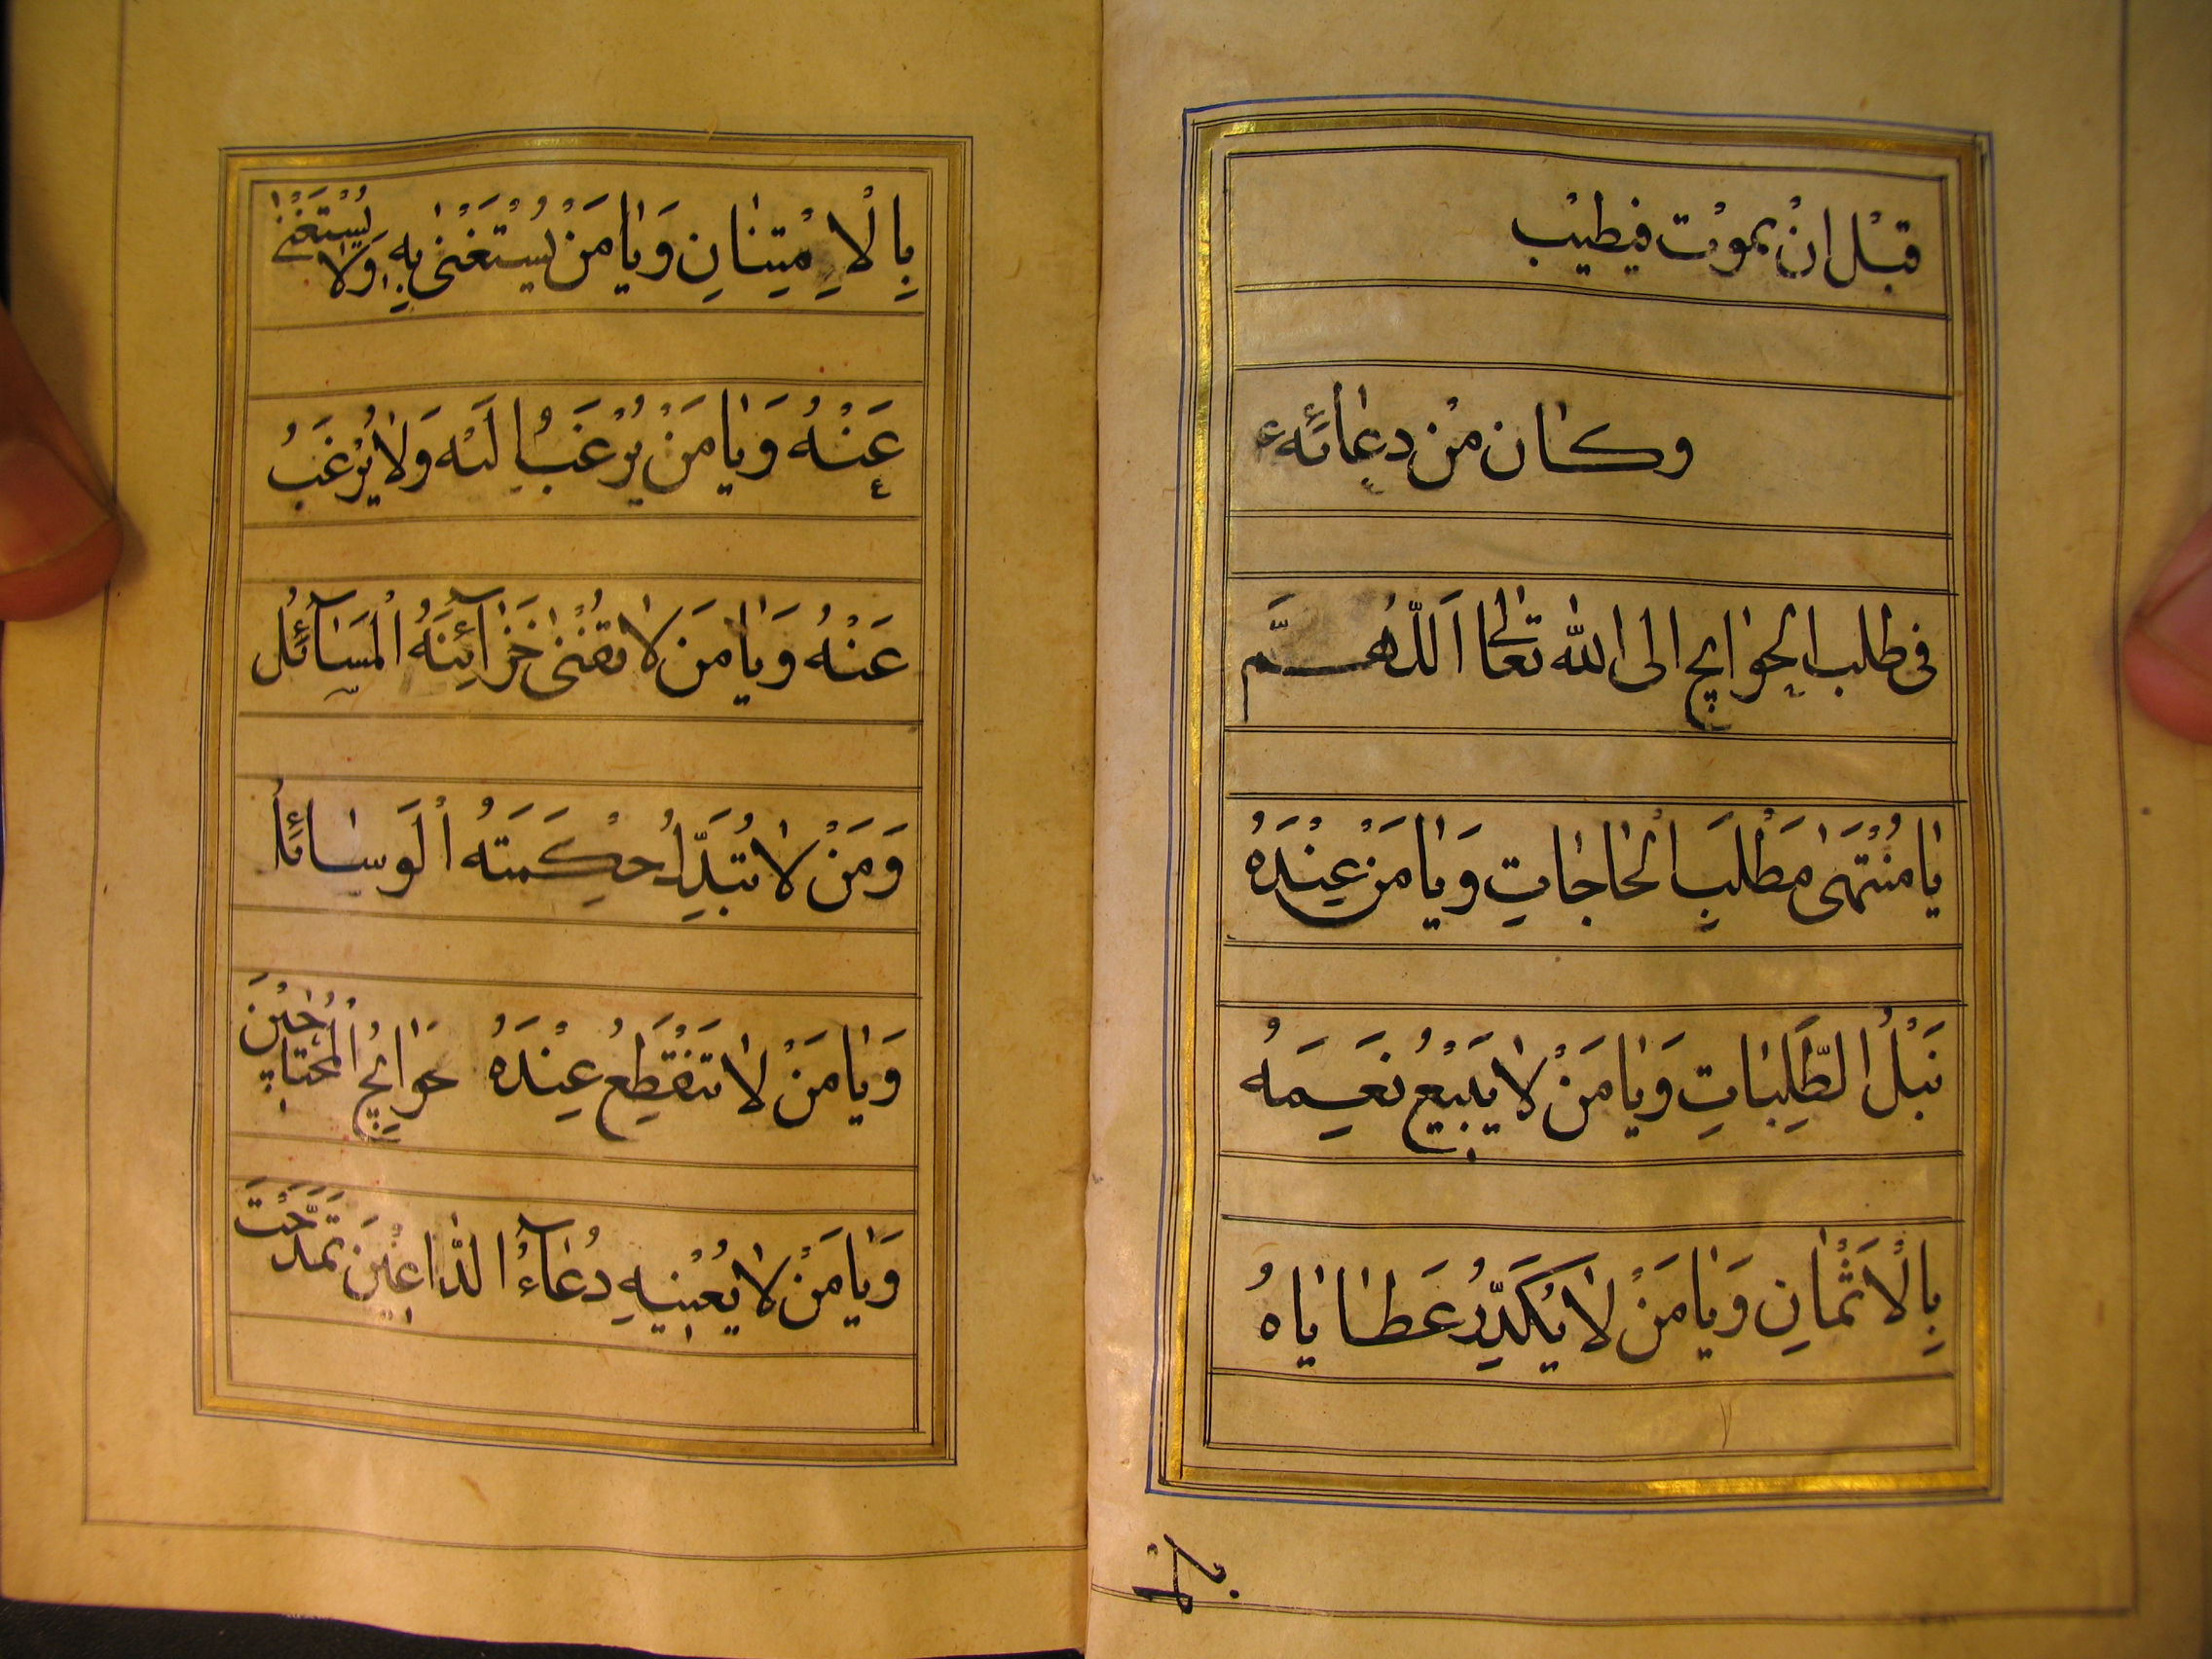 قبْل انْ يموْت فيطيْب
وكان منْ دعائه ع
فى طلب الحوايج الى الله تعالى اَللّهُمَّ
يا مُنْتَهى مَطْلَبِ الْحاجاتِ وَيا مَنْ عِنْدَهُ
نَيْلُ الطَّلِباتِ وَيا مَنْ لا يَبيْعُ نِعَمَهُ
بِالْاَثْمانِ وَيا مَنْ لا يُكَدِّرُ عَطاياهُ
بِالْاِمْتِنانِ وَيا مَنْ يُسْتَغْنى بِهِ وَلا يُسْتَغْنى
عَنْهُ وَيا مَنْ يُرْغَبُ اِلَيْهِ وَلا يُرْغَبُ
عَنْهُ وَيا مَنْ لا تُفْنى خَزآئِنَهُ الْمَسآئِلُ
وَمَنْ لا تُبَدِّلُ حِكْمَتَهُ الْوَسائِلُ
وَيا مَنْ لا تَنْقَطِعُ عِنْدَهُ حَوايِجُ الْمُحْتاجيْنَ
وَيا مَنْ لا يُعْنيْهِ دُعآءُ الدّاعيْنَ تَمَدَّحْتَ